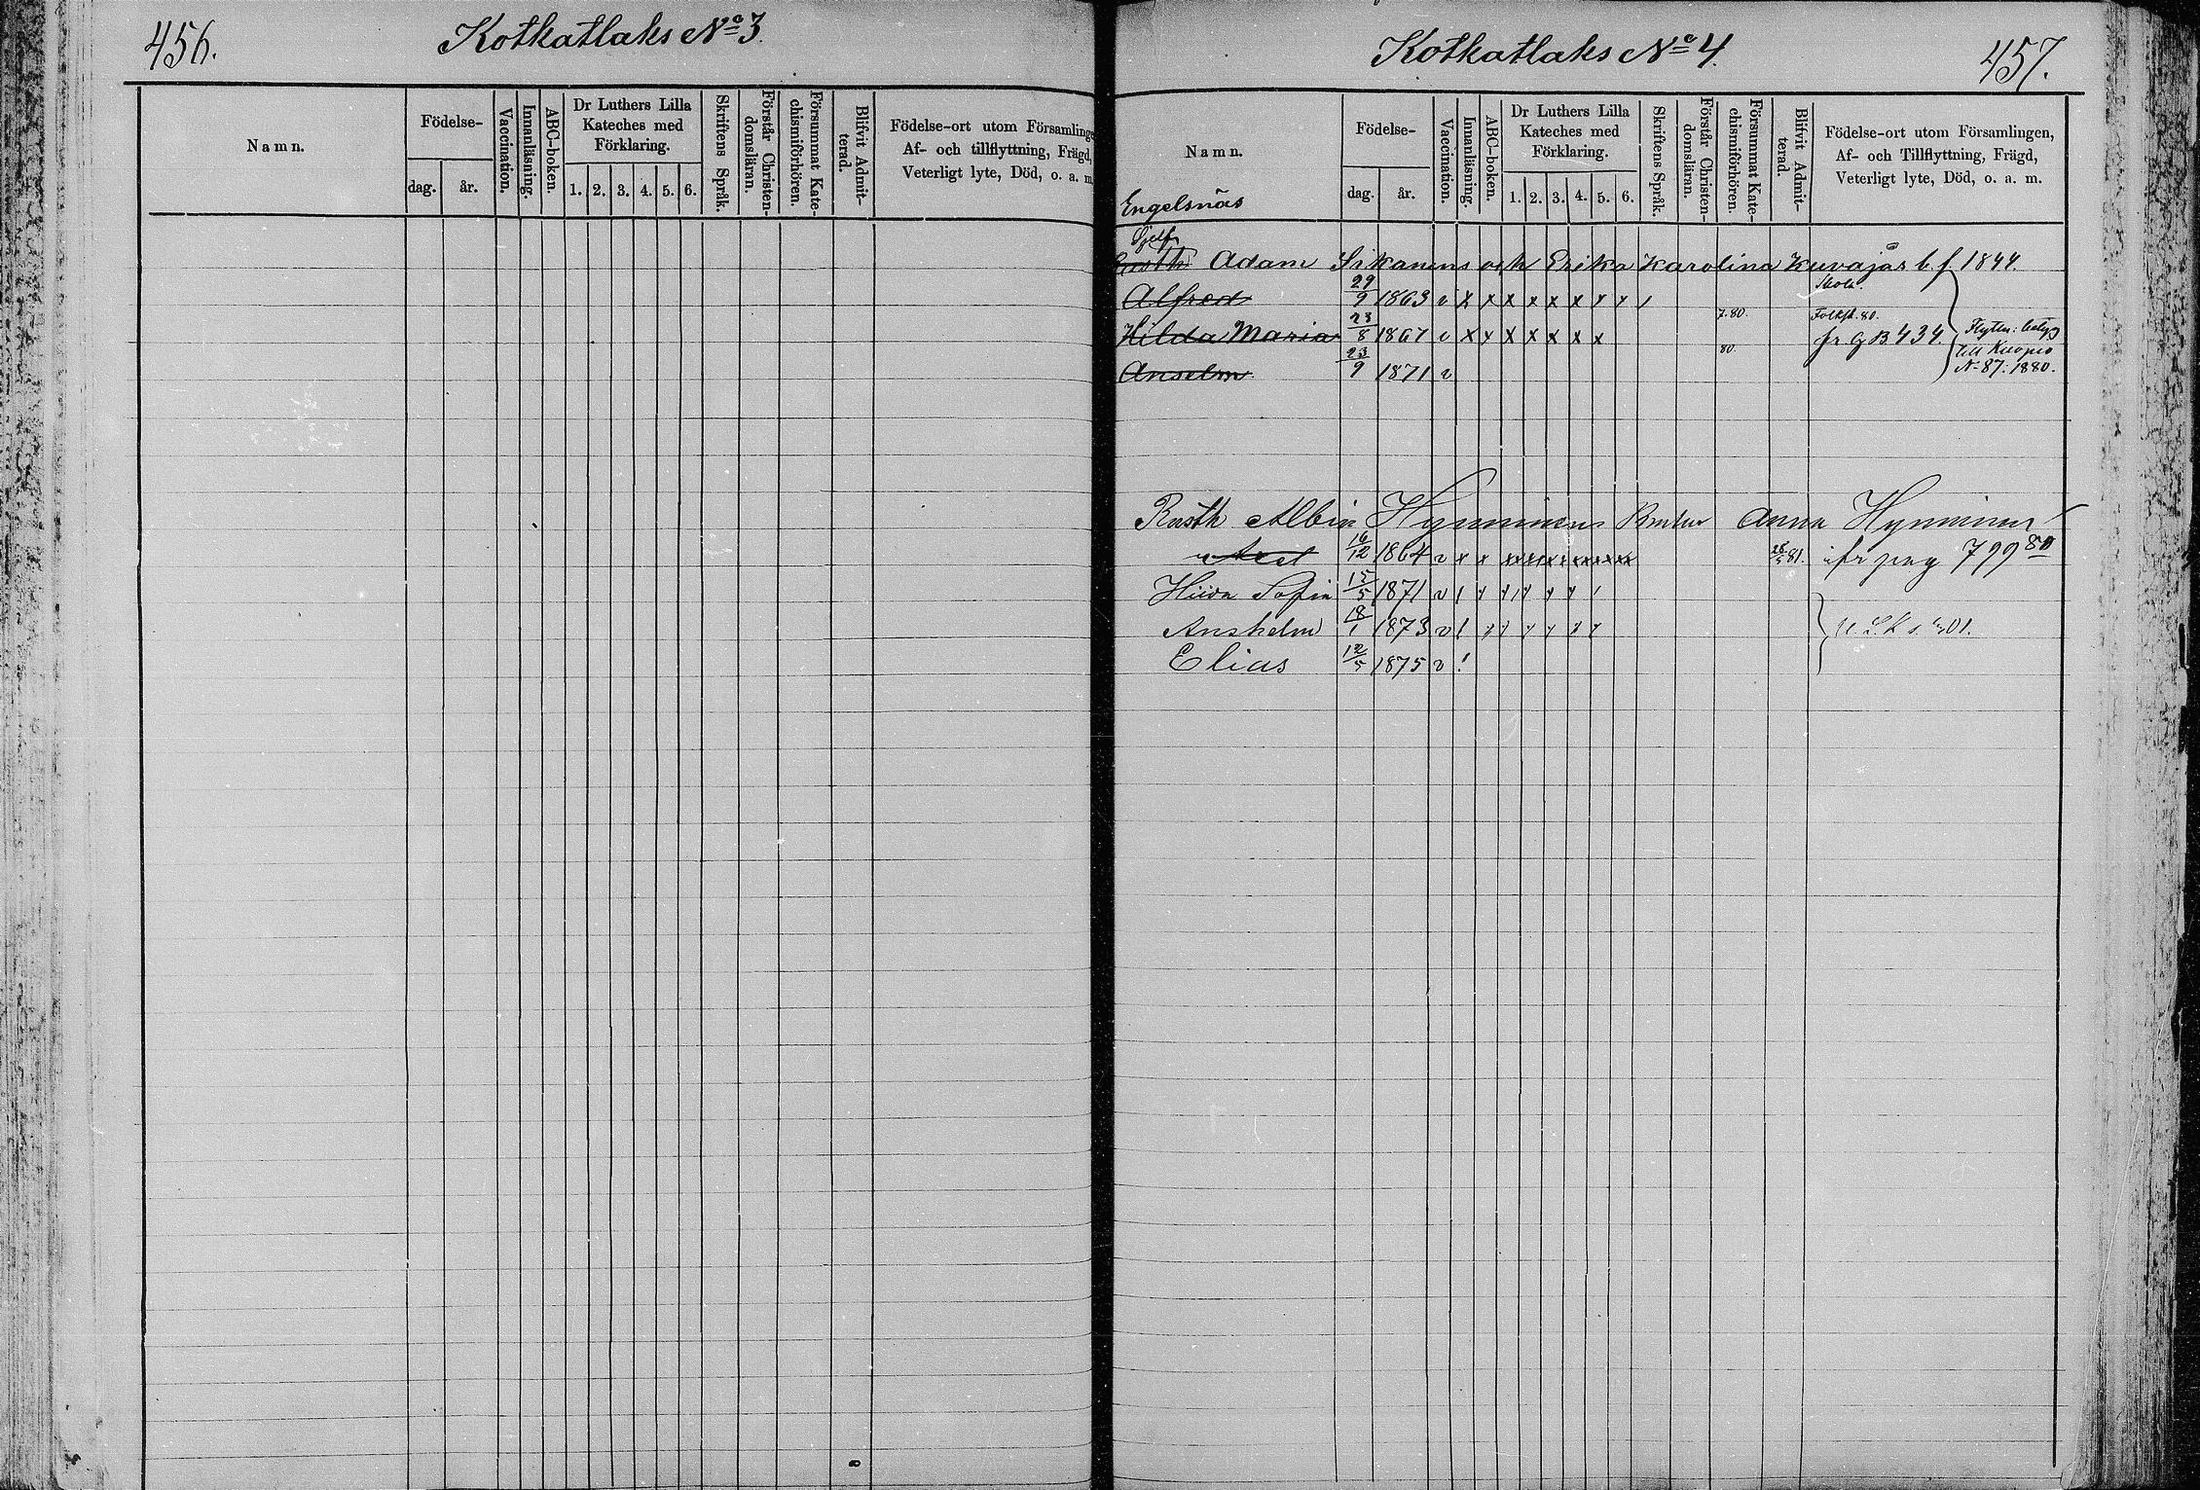 456.
Kotkatlaks No 3.
Namn.
Födelse-
dag. år.
Vaccination.
Innanläsning.
ABC-boken.
Dr Luthers Lilla
Kateches med
Förklaring.
1. 2. 3. 4. 5. 6.
Skriftens Språk.
Förstår Christen-
domsläran.
Försummat Kate-
chismiförhören.
Blifvit Admit-
terad.
Födelse-ort utom Församling
Af- och tillflyttning, Frägd,
Veterligt lyte, Död, o. a. m
Kotkatlaks No 4.
457.
Namn.
Födelse-
dag. år.
Vaccination.
Innanläsning.
ABC-boken.
Dr Luthers Lilla
Kateches med
Förklaring.
1. 2. 3. 4. 5. 6.
Skriftens Språk.
Förstår Christen-
domsläran.
Försummat Kate-
chismiförhören.
Blifvit Admit-
terad.
Födelse-ort utom Församlingen,
Af- och Tillflyttning, Frägd,
Veterligt lyte, Död, o. a. m.
Engelsnäs
Sjelf
Adam Sikanens och Erika Karolina Kuvajas b. f. 1844.
Alfred 29/9 1863 v x x x x x x x x
Hilda Maria 23/8 1867 v x x x x x x x 7.80. Folksk. 80. fr g B 434.
Anselm 23/9 1871 v 80.
till Kuopio
N 87: 1880.
Albin Hynninens Anna Hynninen
16/12 1864 v x x 81. fr pag 799 80
Sofia 15/5 1871 v
Anshelm 18/1 1873 v
Elias 12/5 1875 v !